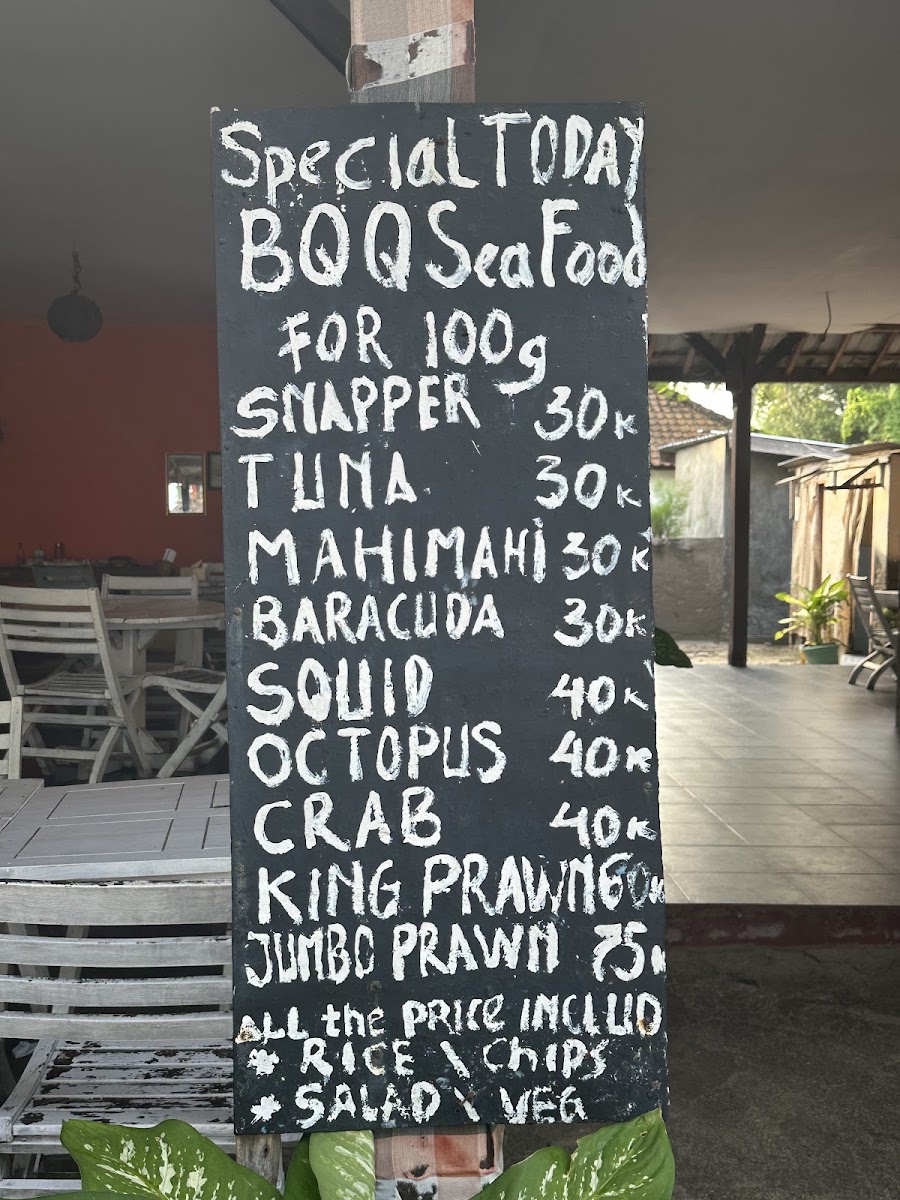 Special TODAY
BQQ SeaFood
FOR 100g
SNAPPER 30K
TUNA 30K
MAHIMAHi 30K
BARACUDA 30K
SQUID 40K
OCTOPUS 40K
CRAB 40K
KING PRAWN 60K
JUMBO PRAWN 75K
ALL the PRICE INCLUD
* RICE \ ChiPS
* SALAD \ VEG